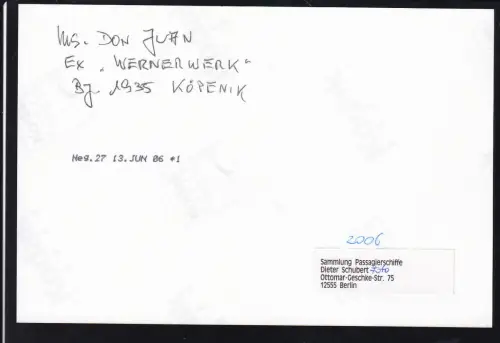 MS. DON JUAN
EX „WERNERWERK"
Bj. 1935 KÖPENIK
Neg.27 13.JUN 06 *1
2006
Sammlung Passagierschiffe
Dieter Schubert Foto
Ottomar-Geschke-Str. 75
12555 Berlin